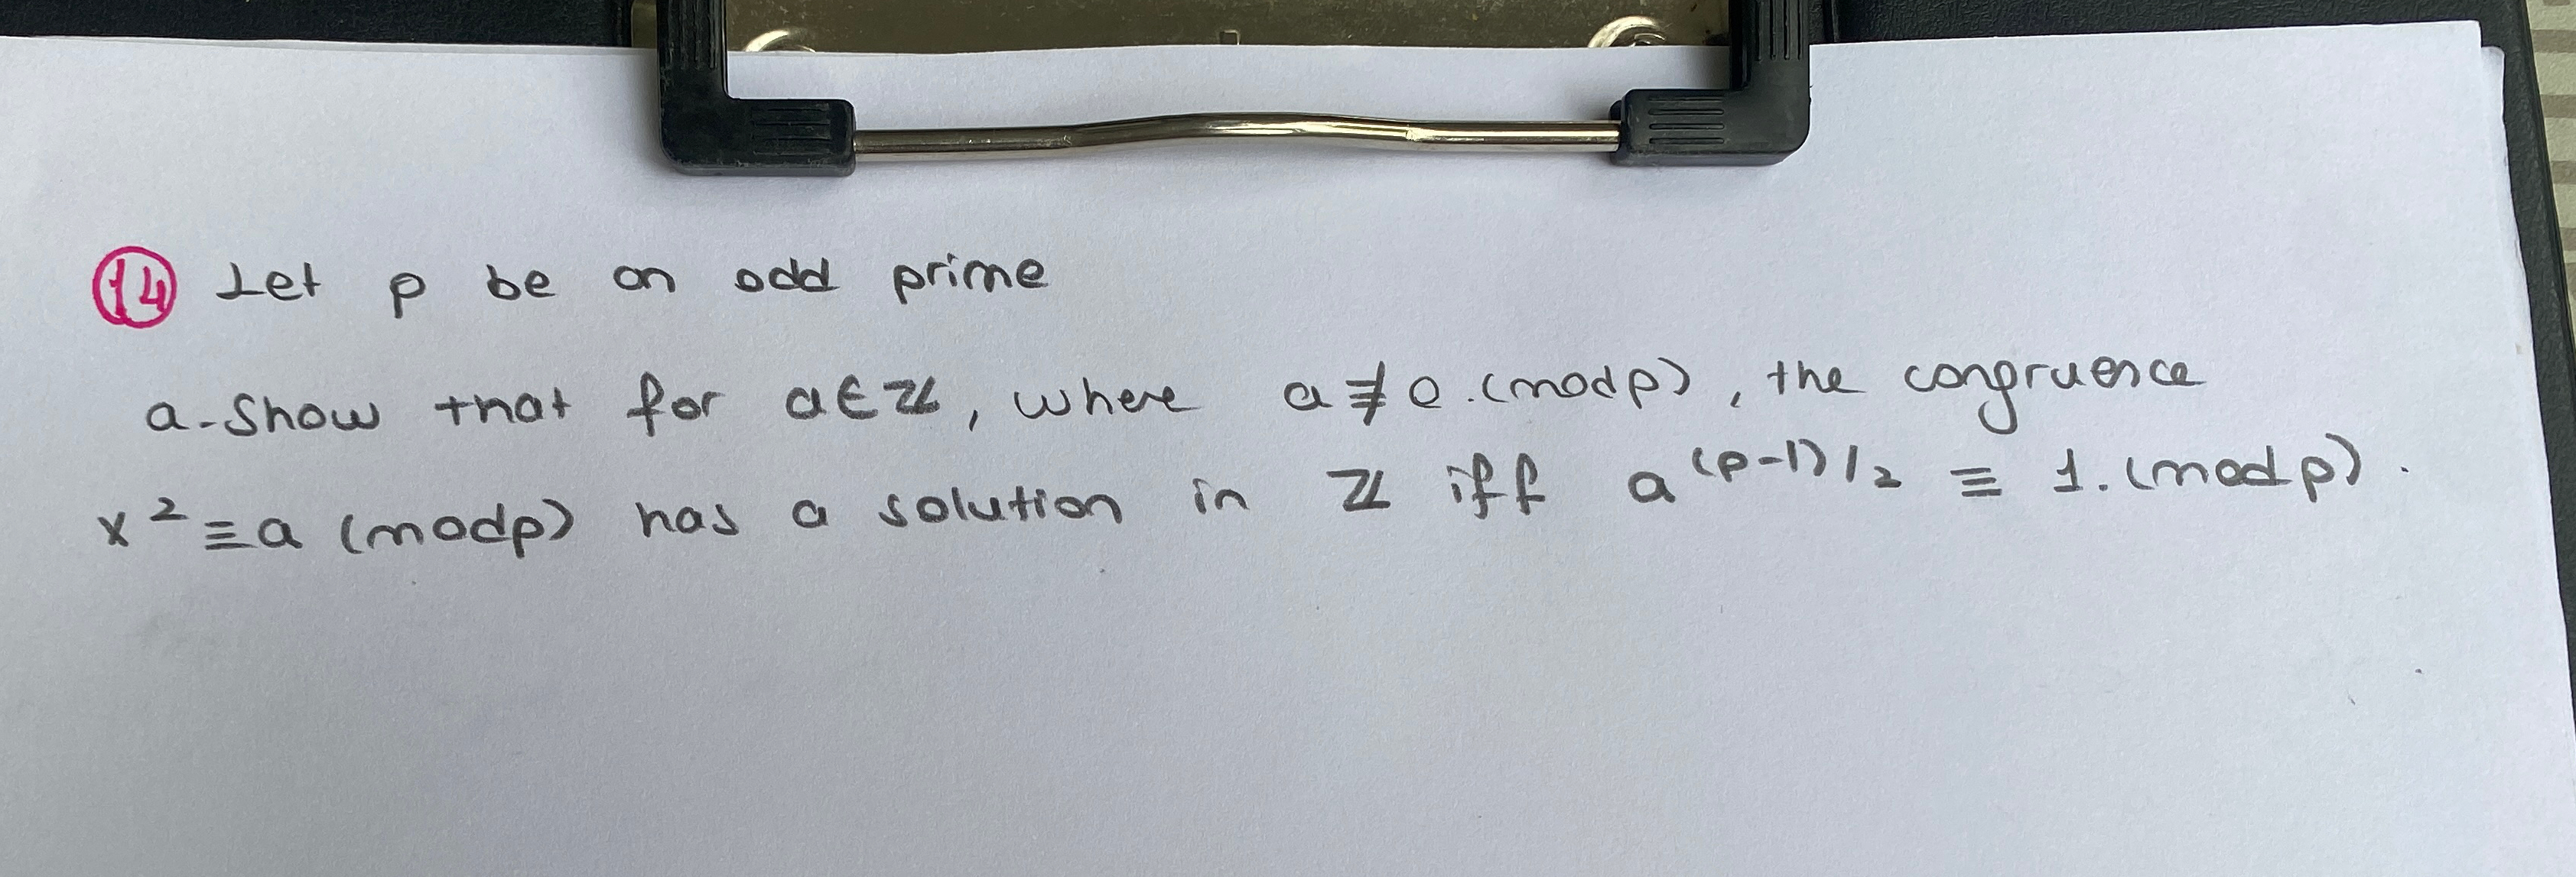 14 Let p be an odd prime
a-Show that for a∈ℤ, where a≢0.(modp), the congruence
x²≡a (modp) has a solution in ℤ iff a^(p-1)/2 ≡ 1.(modp).